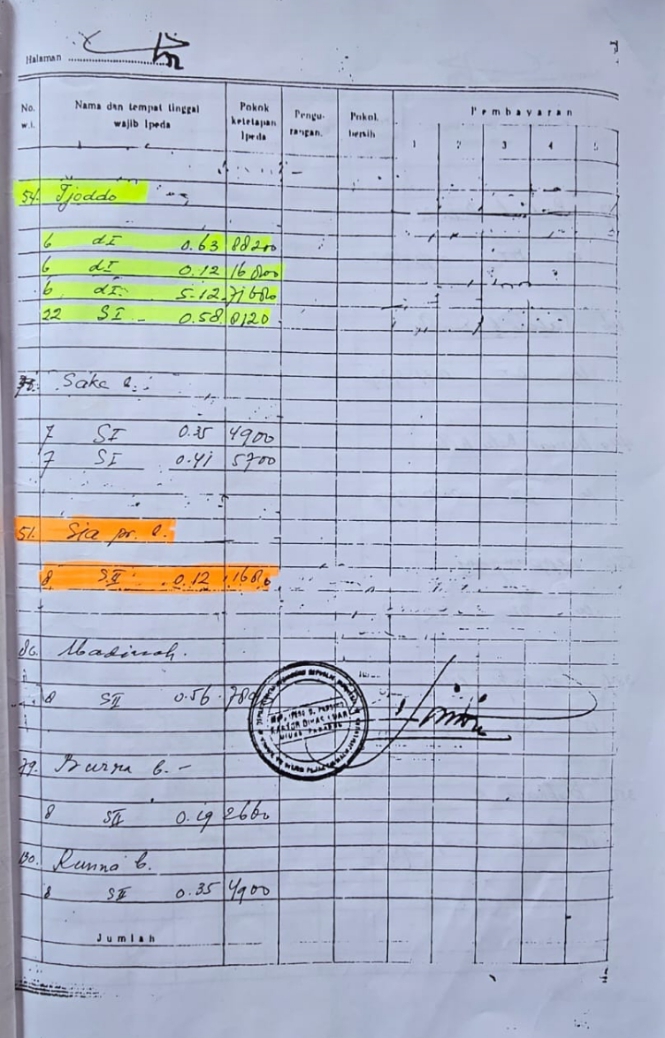 Halaman
No. w.i. Nama dan tempat tinggal wajib Ipeda Pokok ketetapan Ipeda Pengu-rangan. Pokok bersih Pembayaran
1 2 3 4 5
54. Tjoddo
6 dI 0.63 88200
6 dI 0.12 16800
6 dI 5.12 71680
22 SI 0.58 8120
Sake
7 SI 0.35 4900
7 SI 0.41 5700
51. Sia pr. l.
8 SII 0.12 1680
Madinah.
8 SII 0.56
79. Burna b. -
8 SII 0.19 2660
Runna b.
8 SII 0.35 4900
Jumlah